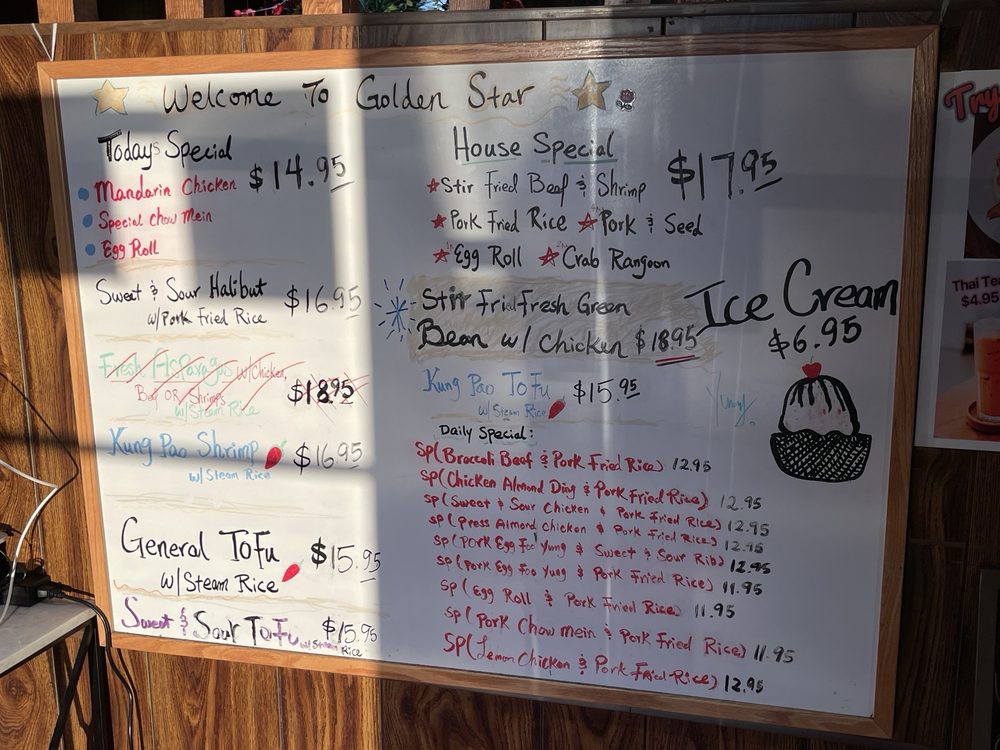 Welcome To Golden Star
Todays Special
$14.95
Mandarin Chicken
Special Chow Mein
Egg Roll
Sweet & Sour Halibut $16.95
w/Pork Fried Rice
Fresh Asparagus w/Chicken,
Beef OR Shrimps $18.95
w/Steam Rice
Kung Pao Shrimp $16.95
w/Steam Rice
General ToFu $15.95
w/Steam Rice
Sweet & Sour ToFu w/Steam Rice $15.95
House Special
$17.95
Stir Fried Beef & Shrimp
Pork Fried Rice Pork & Seed
Egg Roll Crab Rangoon
Stir Fried Fresh Green
Bean w/ Chicken $18.95
Kung Pao ToFu $15.95
w/Steam Rice
Ice Cream
$6.95
Yummy.
Daily Special:
SP(Broccoli Beef & Pork Fried Rice) 12.95
SP(Chicken Almond Ding & Pork Fried Rice) 12.95
SP(Sweet & Sour Chicken & Pork Fried Rice) 12.95
SP(Press Almond Chicken & Pork Fried Rice) 12.95
SP(PORK Egg Foo Yung & Sweet & Sour Rib) 12.95
SP(Pork Egg Foo Yung & Pork Fried Rice) 11.95
SP(Egg Roll & Pork Fried Rice) 11.95
SP(Pork Chow mein & Pork Fried Rice) 11.95
SP(Lemon Chicken & Pork Fried Rice) 12.95
Try
Thai Te
$4.95